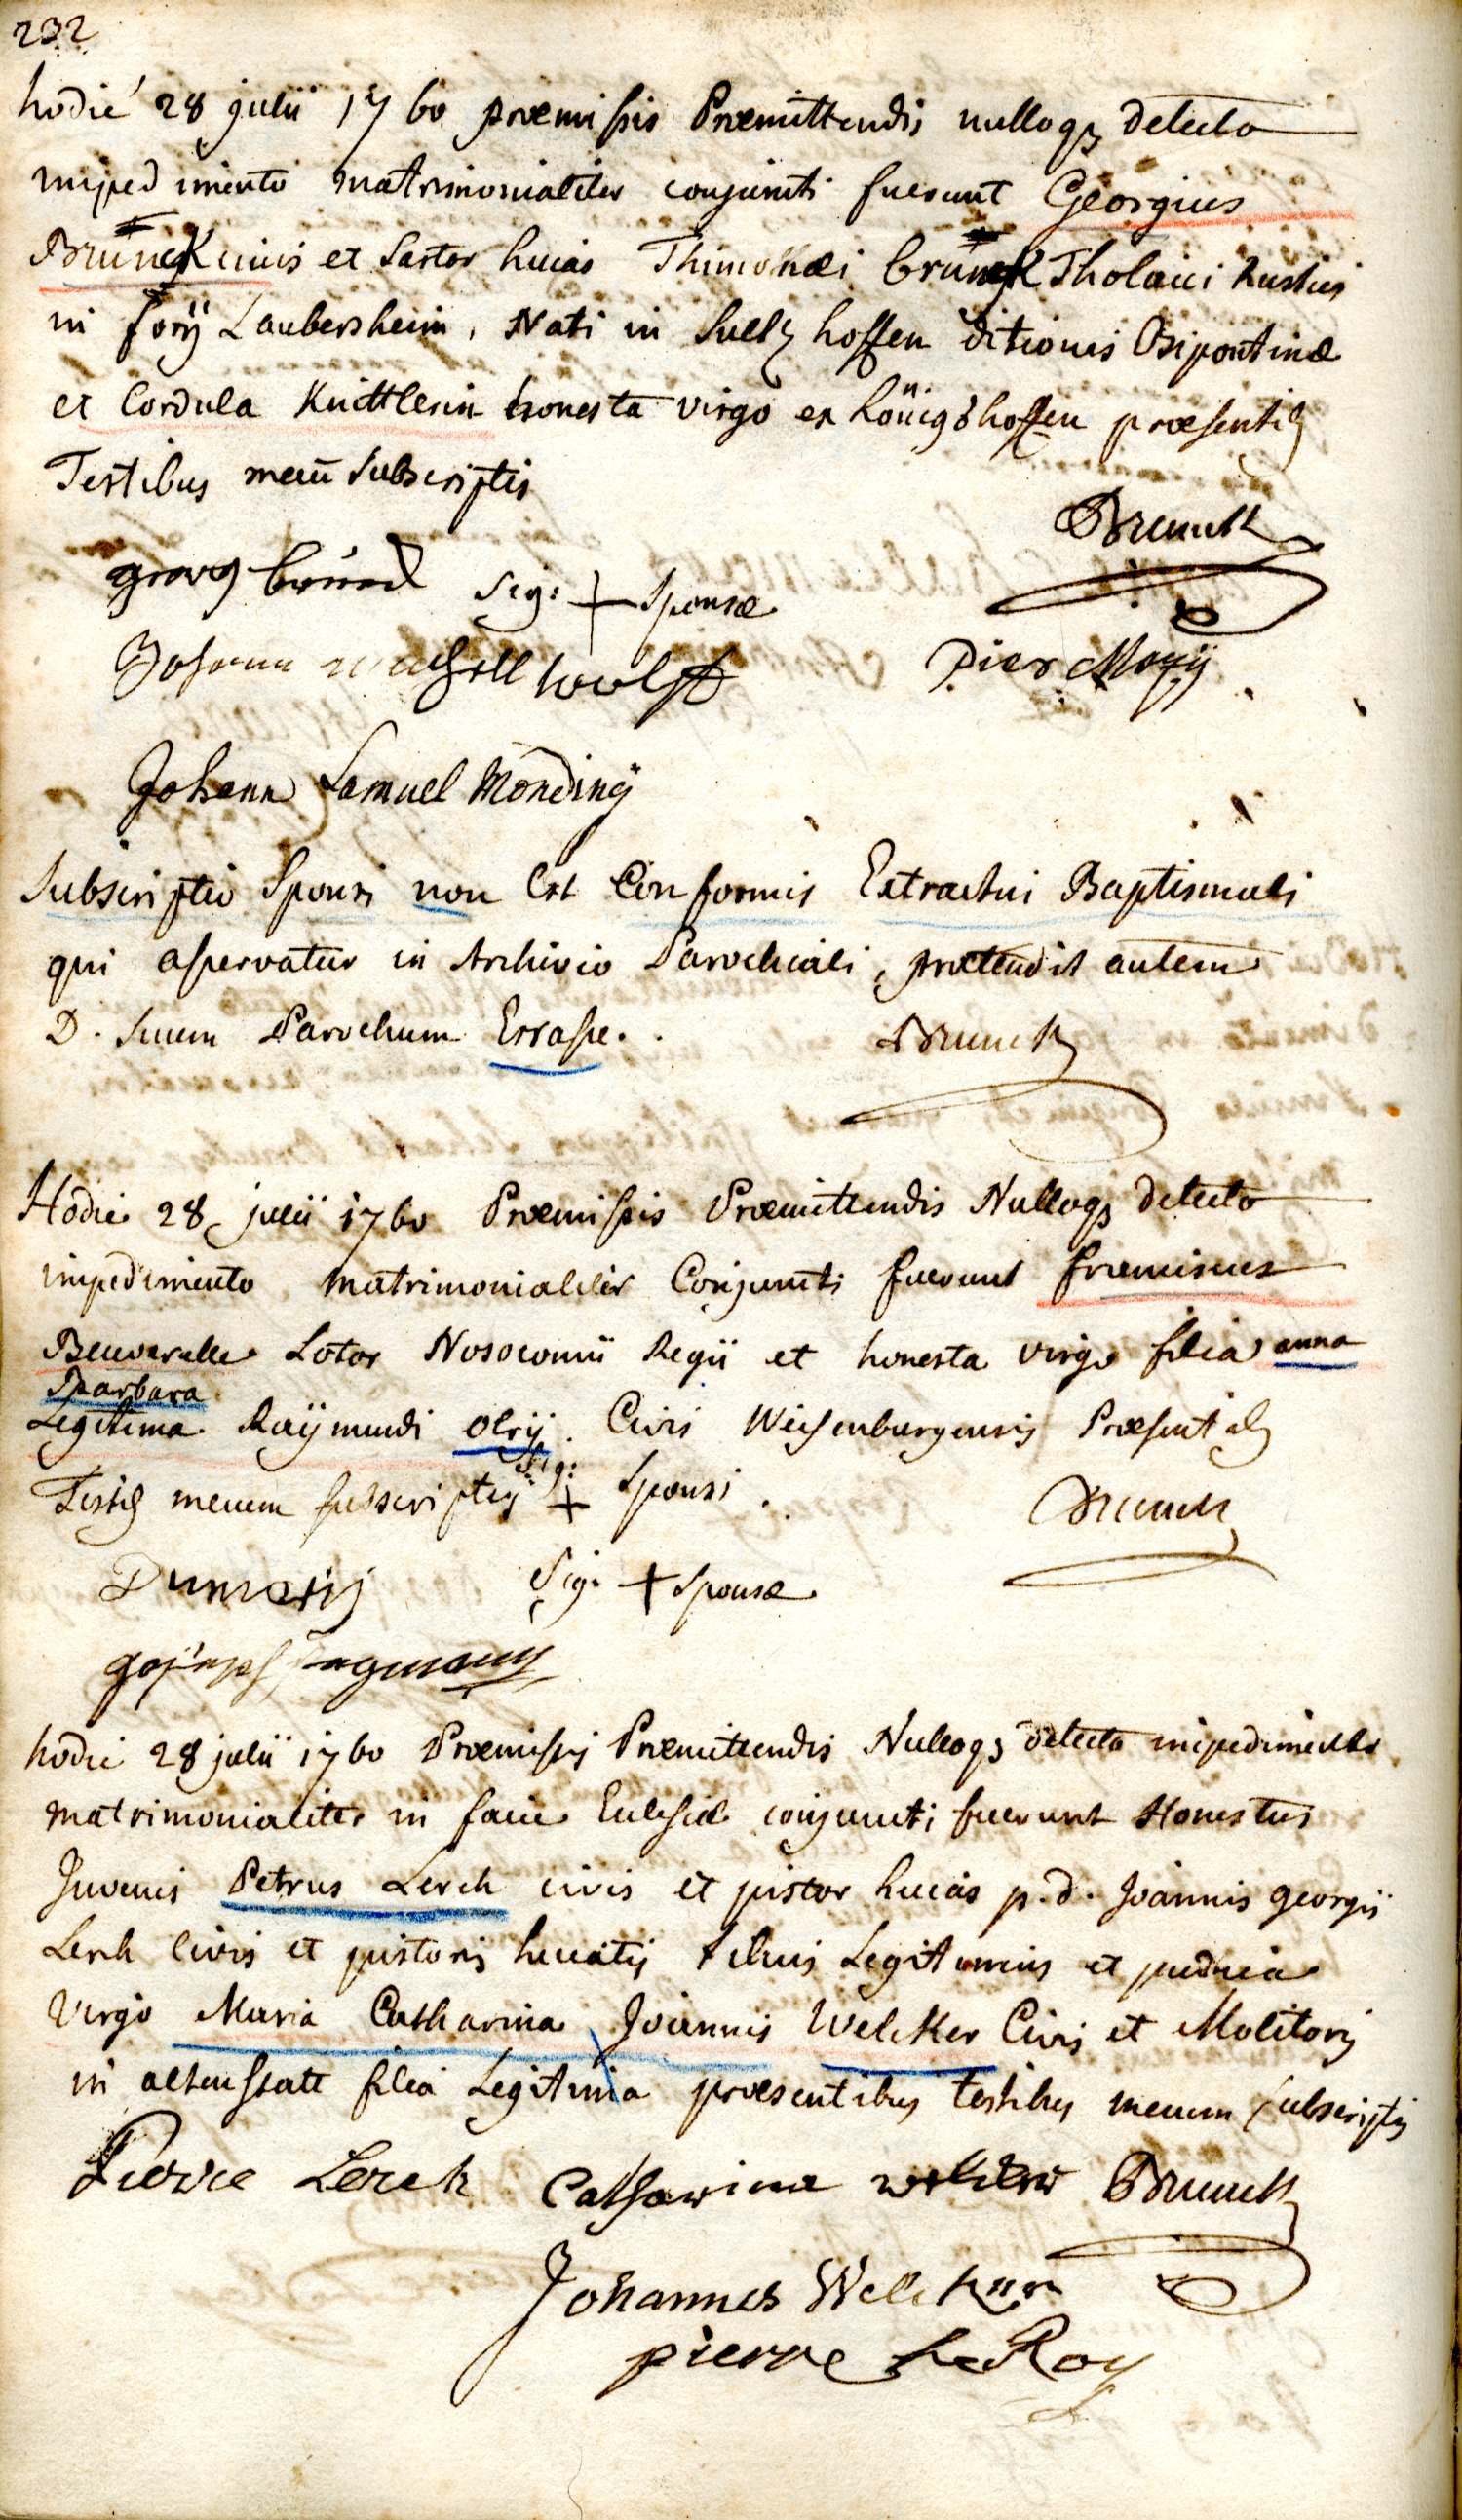 232
hodie 28 julii 1760 præmissis Præmittendis nulloq3 detecto
impedimento matrimonialiter conjuncti fuerunt Georgius
Brunck civis et Sartor hucas Thimothæi brunck
in Laubersheim, Nati in Sultzhoffen ditionis Bipontinæ
et Cordula Knittlerin honesta virgo ex Königshoffen præsentib
Testibus mecū Subscriptis
Brunck
georg Sig: + Sponsæ
Johann woolff
Johann Samuel Mondiny
Subscriptio Sponsi non Est Conformis Extractui Baptismali
qui asservatur in Archivio Parochiali, prætendit autem
D. Suum Parochum Errasse.
Brunck
Hodie 28 julii 1760 Præmissis Præmittendis Nulloq3 detecto
impedimento matrimonialiter Conjuncti fuerunt franciscus
Lotor Nosocomii Regii et honesta virgo filia anna
Barbara
Legitima Raÿmundi olrÿ. Civis Weissenburgensis Præsentib
Testib mecum subscriptis Sig: + Sponsi.
Brunck
Sig. + Sponsæ
hodie 28 julii 1760 Præmissis Præmittendis Nulloq3 detecto impedimento
matrimonialiter in facie Ecclesiæ conjuncti fuerunt Honestus
Juvenis Petrus Lerch civis et pistor hucas p.d. Joannis georgii
Lerch Civis et pistoris hucatis filius Legitimus et pudica
Virgo Maria Catharina Joannis Welcker Civis et Molitoris
in altenstatt filia Legitima præsentibus testibus mecum subscriptis
Pierre Lerch Catharina Brunck
Johannes Welcker
pierre Le Roy